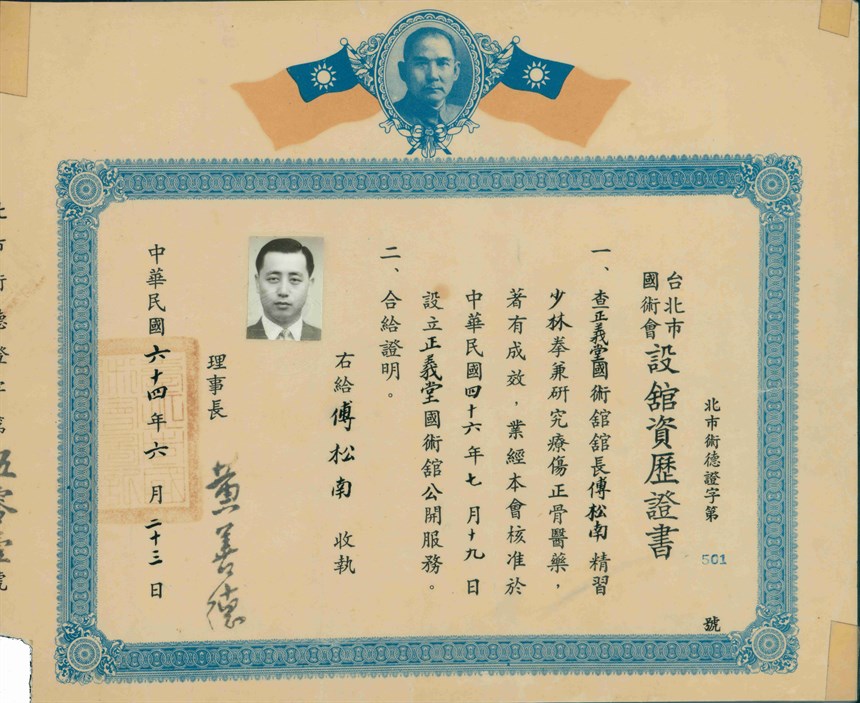 北市術德證字第501號
台北市
國術會
設舘資歷證書
一、查正義堂國術舘舘長傅松南精習
少林拳兼研究療傷正骨醫藥，
著有成效，業經本會核准於
中華民國四十六年七月十九日
設立正義堂國術舘公開服務。
二、合給證明。
右給傅松南收執
理事長
黃善德
中華民國六十四年六月二十三日
北市術德證字第伍零壹號